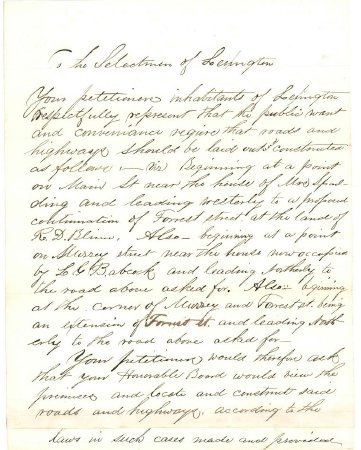 To the Selectmen of Lexington
Your petitioners inhabitants of Lexington
respectfully represent that the public want
and convenience require that roads and
highways should be laid out & constructed
as follows — viz Beginning at a point
on Main St near the house of Mrs Spaul-
ding and leading westerly to a proposed
continuation of Forrest street at the land of
R. D. Blinn. Also — beginning at a point
on Muzzey street near the house now occupied
by L G Babcock and leading Northerly to
the road above asked for. Also — beginning
at the corner of Muzzey and Forest st. being
an extension of Forrest St. and leading North
erly to the road above asked for —
Your petitioners would therefore ask
that your Honorable Board would view the
premises and locate and construct said
roads and highways, according to the
laws in such cases made and provided